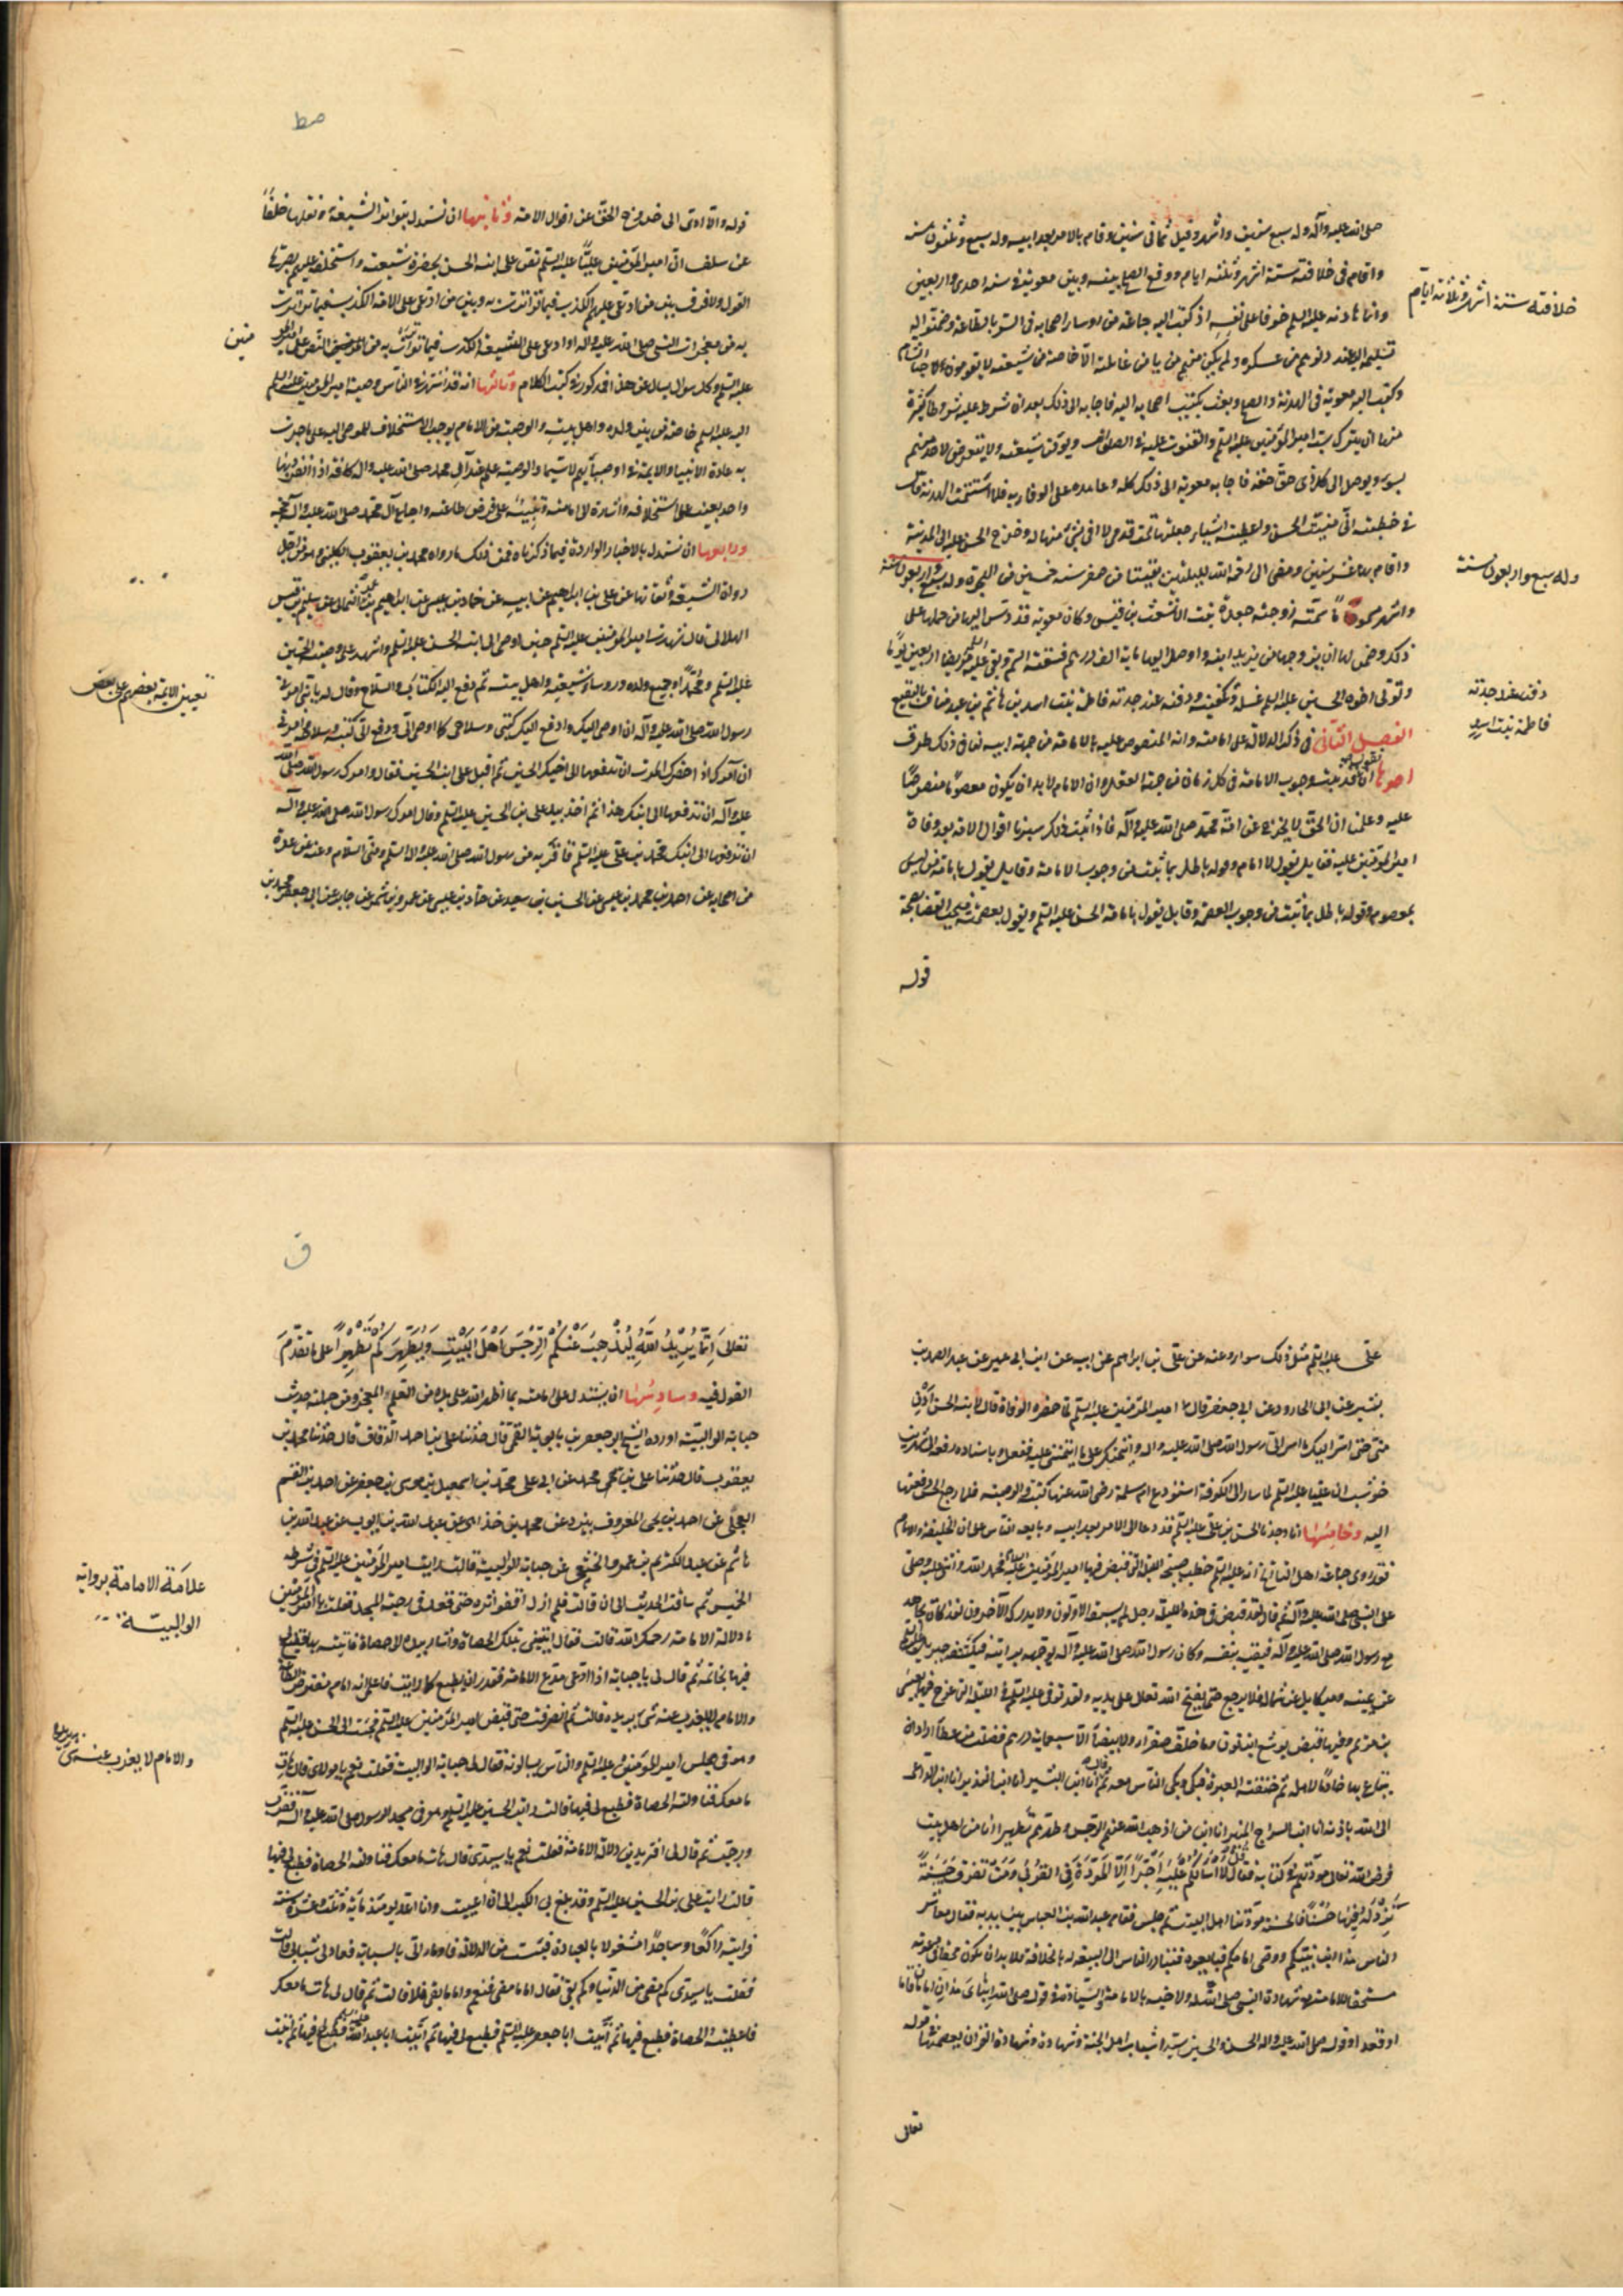 صلى الله عليه وآله وله سبع سنين واشهر وقيل ثماني سنين وقام بالامر بعد ابيه وله سبع وثلثون سنة
واقام في خلافته ستة اشهر وثلثة ايام ووقع الصلح بينه وبين معوية في سنة احدى واربعين
وانما هادنه عليه السلم خوفا على نفسه اذ كتب اليه جماعة من روساء اصحابه في السر بالطاعة وضمنوا له
تسليمه اليه عند دنوهم من عسكره ولم يكن منهم من يامن غائلته الا خاصة من شيعته لا يقومون لاجناد الشام
وكتب اليه معوية في الهدنة والصلح وبعث بكتب اصحابه اليه فاجابه الى ذلك بعد ان شرط عليه شروطا كثيرة
منها ان يترك سب امير المؤمنين عليه السلم والقنوت عليه في الصلوات ويؤمن شيعته ولا يتعرض لاحد منهم
بسوء ويوصل الى كل ذي حق حقه فاجابه معوية الى ذلك كله وعاهده على الوفاء به فلما استتمت الهدنة قال
في خطبته اني منيت الحسن واعطيته اشياء جعلتها تحت قدمي لا افي بشئ منها له وخرج الحسن عليه الى المدينة
واقام بها عشر سنين ومضى الى رحمة الله لليلتين بقيتا من صفر سنة خمسين من الهجرة وله سبع واربعون سنة
واشهر مسموما سمته زوجته جعدة بنت الاشعث بن قيس وكان معوية قد دس اليها من حملها على
ذلك وضمن لها ان يزوجها من يزيد ابنه واوصل اليها ماية الف درهم فسقته السم وبقى عليه السلم مريضا اربعين يوما
وتولى اخوه الحسين عليه السلم غسله وتكفينه ودفنه عند جدته فاطمة بنت اسد بن هاشم بن عبد مناف بالبقيع
الفصل الثاني في ذكر الدلالة على امامته وانه المنصوص عليه بالامامة من جهة ابيه لنا في ذلك طرق
احدها ان نقول قد ثبت وجوب الامامة في كل زمان من جهة العقل وان الامام لابد ان يكون معصوما منصوصا
عليه وعلمنا ان الحق لا يخرج عن امة محمد صلى الله عليه وآله فاذا ثبت ذلك سبرنا اقوال الامة بعد وفاة
امير المؤمنين عليه فقايل يقول لا امام وقوله باطل بما ثبت من وجوب الامامة وقايل يقول بامامة من ليس
بمعصوم وقوله باطل بما ثبت من وجوب العصمة وقايل يقول بامامة الحسن عليه السلم ويقول بعصمته فيجب القضاء بصحة
قوله
خلافته ستة اشهر وثلاثة ايام
وله سبع واربعون سنة
دفنه عند جدته
فاطمة بنت اسد
صط
قوله والا ادى الى خروج الحق عن اقوال الامة وثانيها ان نستدل بتواتر الشيعة ونقلها خلفا
عن سلف ان امير المؤمنين عليا عليه السلم نص على ابنه الحسن بحضرة شيعته واستخلفه عليهم بصريح
القول ولا فرق بين من ادعى عليهم الكذب فيما تواترت به وبين من ادعى على الامة الكذب فيما تواترت
به من معجزات النبي صلى الله عليه واله او ادعى على الشيعة الكذب فيما تواترت به من النص على امير المؤمنين
عليه السلم وكل سوال يسال عن هذا فمذكور في كتب الكلام وثالثها انه قد اشتهر في الناس وصية امير المؤمنين عليه السلم
اليه عليه السلم خاصة من بين ولده واهل بيته والوصية من الامام يوجب الاستخلاف للموصى اليه على ما جرت
به عادة الانبيا والايمة في اوصيائهم لا سيما والوصية علم عند آل محمد صلى الله عليه واله كافة اذا انفرد بها
واحد بعينه على استخلافه واشارة الى امامته وتنبيه على فرض طاعته واجماع آل محمد صلى الله عليه وآله حجة
ورابعها ان نستدل بالاخبار الواردة فيما ذكرناه فمن ذلك ما رواه محمد بن يعقوب الكليني وهو من اجل
رواة الشيعة وثقاتها عن علي بن ابراهيم عن ابيه عن حماد بن عيسى عن ابراهيم بن عمر اليماني عن سليم بن قيس
الهلالي قال شهدت امير المؤمنين عليه السلم حين اوصى الى ابنه الحسن عليه السلم واشهد على وصيته الحسين
عليه السلم ومحمدا وجميع ولده وروساء شيعته واهل بيته ثم دفع اليه الكتاب والسلاح وقال له يا بني امرني
رسول الله صلى الله عليه وآله ان اوصي اليك وادفع اليك كتبي وسلاحي كما اوصى الي ودفع الي كتبه وسلاحه وامرني
ان آمرك اذا حضرك الموت ان تدفعها الى اخيك الحسين ثم اقبل على ابنه الحسين فقال وامرك رسول الله صلى الله
عليه وآله ان تدفعها الى ابنك هذا ثم اخذ بيد علي بن الحسين عليه السلم وقال امرك رسول الله صلى الله عليه وآله
ان تدفعها الى ابنك محمد بن علي عليه السلم فاقرئه من رسول الله صلى الله عليه واله السلم ومني السلام وعنه عن عدة
من اصحابه عن احمد بن محمد بن عيسى عن الحسين بن سعيد عن حماد بن عيسى عن عمرو بن شمر عن جابر عن ابي جعفر محمد بن
تعيين الايمة بعضهم على بعض
علي عليه السلم مثل ذلك سواء وعنه عن علي بن ابراهيم عن ابيه عن ابن ابي عمير عن عبد الصمد بن
بشير عن ابي الجارود عن ابي جعفر قال ان امير المؤمنين عليه السلم لما حضره الوفاة قال لابنه الحسن ادن
مني حتى اسر اليك ما اسر الي رسول الله صلى الله عليه واله وائتمنك على ما ائتمنني عليه ففعل وباسناده رفعه الى شهر بن
حوشب ان عليا عليه السلم لما سار الى الكوفة استودع ام سلمة رضي الله عنها كتبه والوصية فلما رجع الحسن دفعتها
اليه وخامسها انا وجدنا الحسن بن علي عليه السلم قد دعا الى الامر بعد ابيه وبايعه الناس على انه الخليفة والامام
فقد روى جماعة اهل التاريخ انه عليه السلم خطب صبيحة الليلة التي قبض فيها امير المؤمنين عليه السلم فحمد الله واثنى عليه وصلى
على النبي صلى الله عليه وآله ثم قال لقد قبض في هذه الليلة رجل لم يسبقه الاولون ولا يدركه الآخرون لقد كان يجاهد
مع رسول الله صلى الله عليه وآله فيقيه بنفسه وكان رسول الله صلى الله عليه وآله يوجهه برايته فيكنفه جبرئيل
عن يمينه وميكايل عن شماله فلا يرجع حتى يفتح الله تعالى على يديه ولقد توفى عليه السلم في الليلة التي عرج فيها بعيسى
بن مريم وفيها قبض يوشع بن نون وما خلف صفراء ولا بيضاء الا سبعماية درهم فضلت من عطائه اراد ان
يبتاع بها خادما لاهله ثم خنقته العبرة فبكى وبكى الناس معه ثم قال انا ابن البشير انا ابن النذير انا ابن الداعي
الى الله باذنه انا ابن السراج المنير انا ابن من اذهب الله عنهم الرجس وطهرهم تطهيرا انا من اهل بيت
فرض الله تعالى مودتهم في كتابه فقال قل لا اسالكم عليه اجرا الا المودة في القربى ومن يقترف حسنة
نزد له فيها حسنا فالحسنة مودتنا اهل البيت ثم جلس فقام عبد الله بن العباس بين يديه فقال معاشر
الناس هذا ابن نبيكم ووصي امامكم فبايعوه فتبادر الناس الى البيعة له بالخلافة فلا بد ان يكون محقا في دعوته
مستحقا للامامة مع شهادة النبي صلى الله عليه وآله له ولاخيه بالامامة والسيادة في قوله صلى الله عليه ابناي هذان امامان قاما
او قعدا وقوله صلى الله عليه واله الحسن والحسين سيدا شباب اهل الجنة وشهادة القرآن بعصمتهما في قوله
تعالى
ق
تعالى إنما يريد الله ليذهب عنكم الرجس أهل البيت ويطهركم تطهيرا على ما تقدم
القول فيه وسادسها ان يستدل على امامته بما اظهر الله على يده من العلم المعجز ومن جملته حديث
حبابة الوالبية اورده الشيخ ابو جعفر بن بابويه القمي قال حدثنا علي بن احمد الدقاق قال حدثنا محمد بن
يعقوب قال حدثنا علي بن محمد عن ابي علي محمد بن اسمعيل بن موسى بن جعفر عن احمد بن القسم
العجلي عن احمد بن يحيى المعروف ببرد عن محمد بن خداهي عن عبد الله بن ايوب عن عبد الله بن
هاشم عن عبد الكريم بن عمرو الخثعمي عن حبابة الوالبية قالت رايت امير المؤمنين عليه السلم في شرطة
الخميس ثم ساقت الحديث الى ان قالت فلم ازل اقفو اثره حتى قعد في رحبة المسجد فقلت يا امير المؤمنين
ما دلالة الامامة رحمك الله قالت فقال ايتيني بتلك الحصاة واشار بيده الى حصاة فاتيته بها فطبع لي
فيها بخاتمه ثم قال لي يا حبابة اذا ادعى مدع الامامة فقدر ان يطبع كما رايت فاعلمي انه امام مفترض الطاعة
والامام لا يعزب عنه شئ يريده قالت ثم انصرفت حتى قبض امير المؤمنين عليه السلم فجئت الى الحسن عليه السلم
وهو في مجلس امير المؤمنين عليه السلم والناس يسالونه فقال لي حبابة الوالبية فقلت نعم يا مولاي قال هات
ما معك فناولته الحصاة فطبع لي فيها قالت ثم رايت الحسين عليه السلم وهو في مسجد الرسول صلى الله عليه وآله فقرب
ورحب ثم قال لي اتريدين دلالة الامامة فقلت نعم يا سيدي قال هات ما معك فناولته الحصاة فطبع لي فيها
قالت رايت علي بن الحسين عليه السلم وقد بلغ بي الكبر الى ان اعييت وانا اعد يومئذ ماية وثلث عشرة سنة
فرايته راكعا وساجدا مشغولا بالعبادة فيئست من الدلالة فاومأ الي بالسبابة فعاد لي شبابي قالت
فقلت يا سيدي كم مضى من الدنيا وكم بقى فقال اما ما مضى فنعم واما ما بقى فلا قالت ثم قال لي هات ما معك
فاعطيته الحصاة فطبع فيها ثم اتيت ابا جعفر عليه السلم فطبع لي فيها ثم اتيت ابا عبد الله عليه السلم فطبع لي فيها ثم اتيت
علامة الامامة برواية
الوالبية
والامام لا يعزب عنه شئ يريده